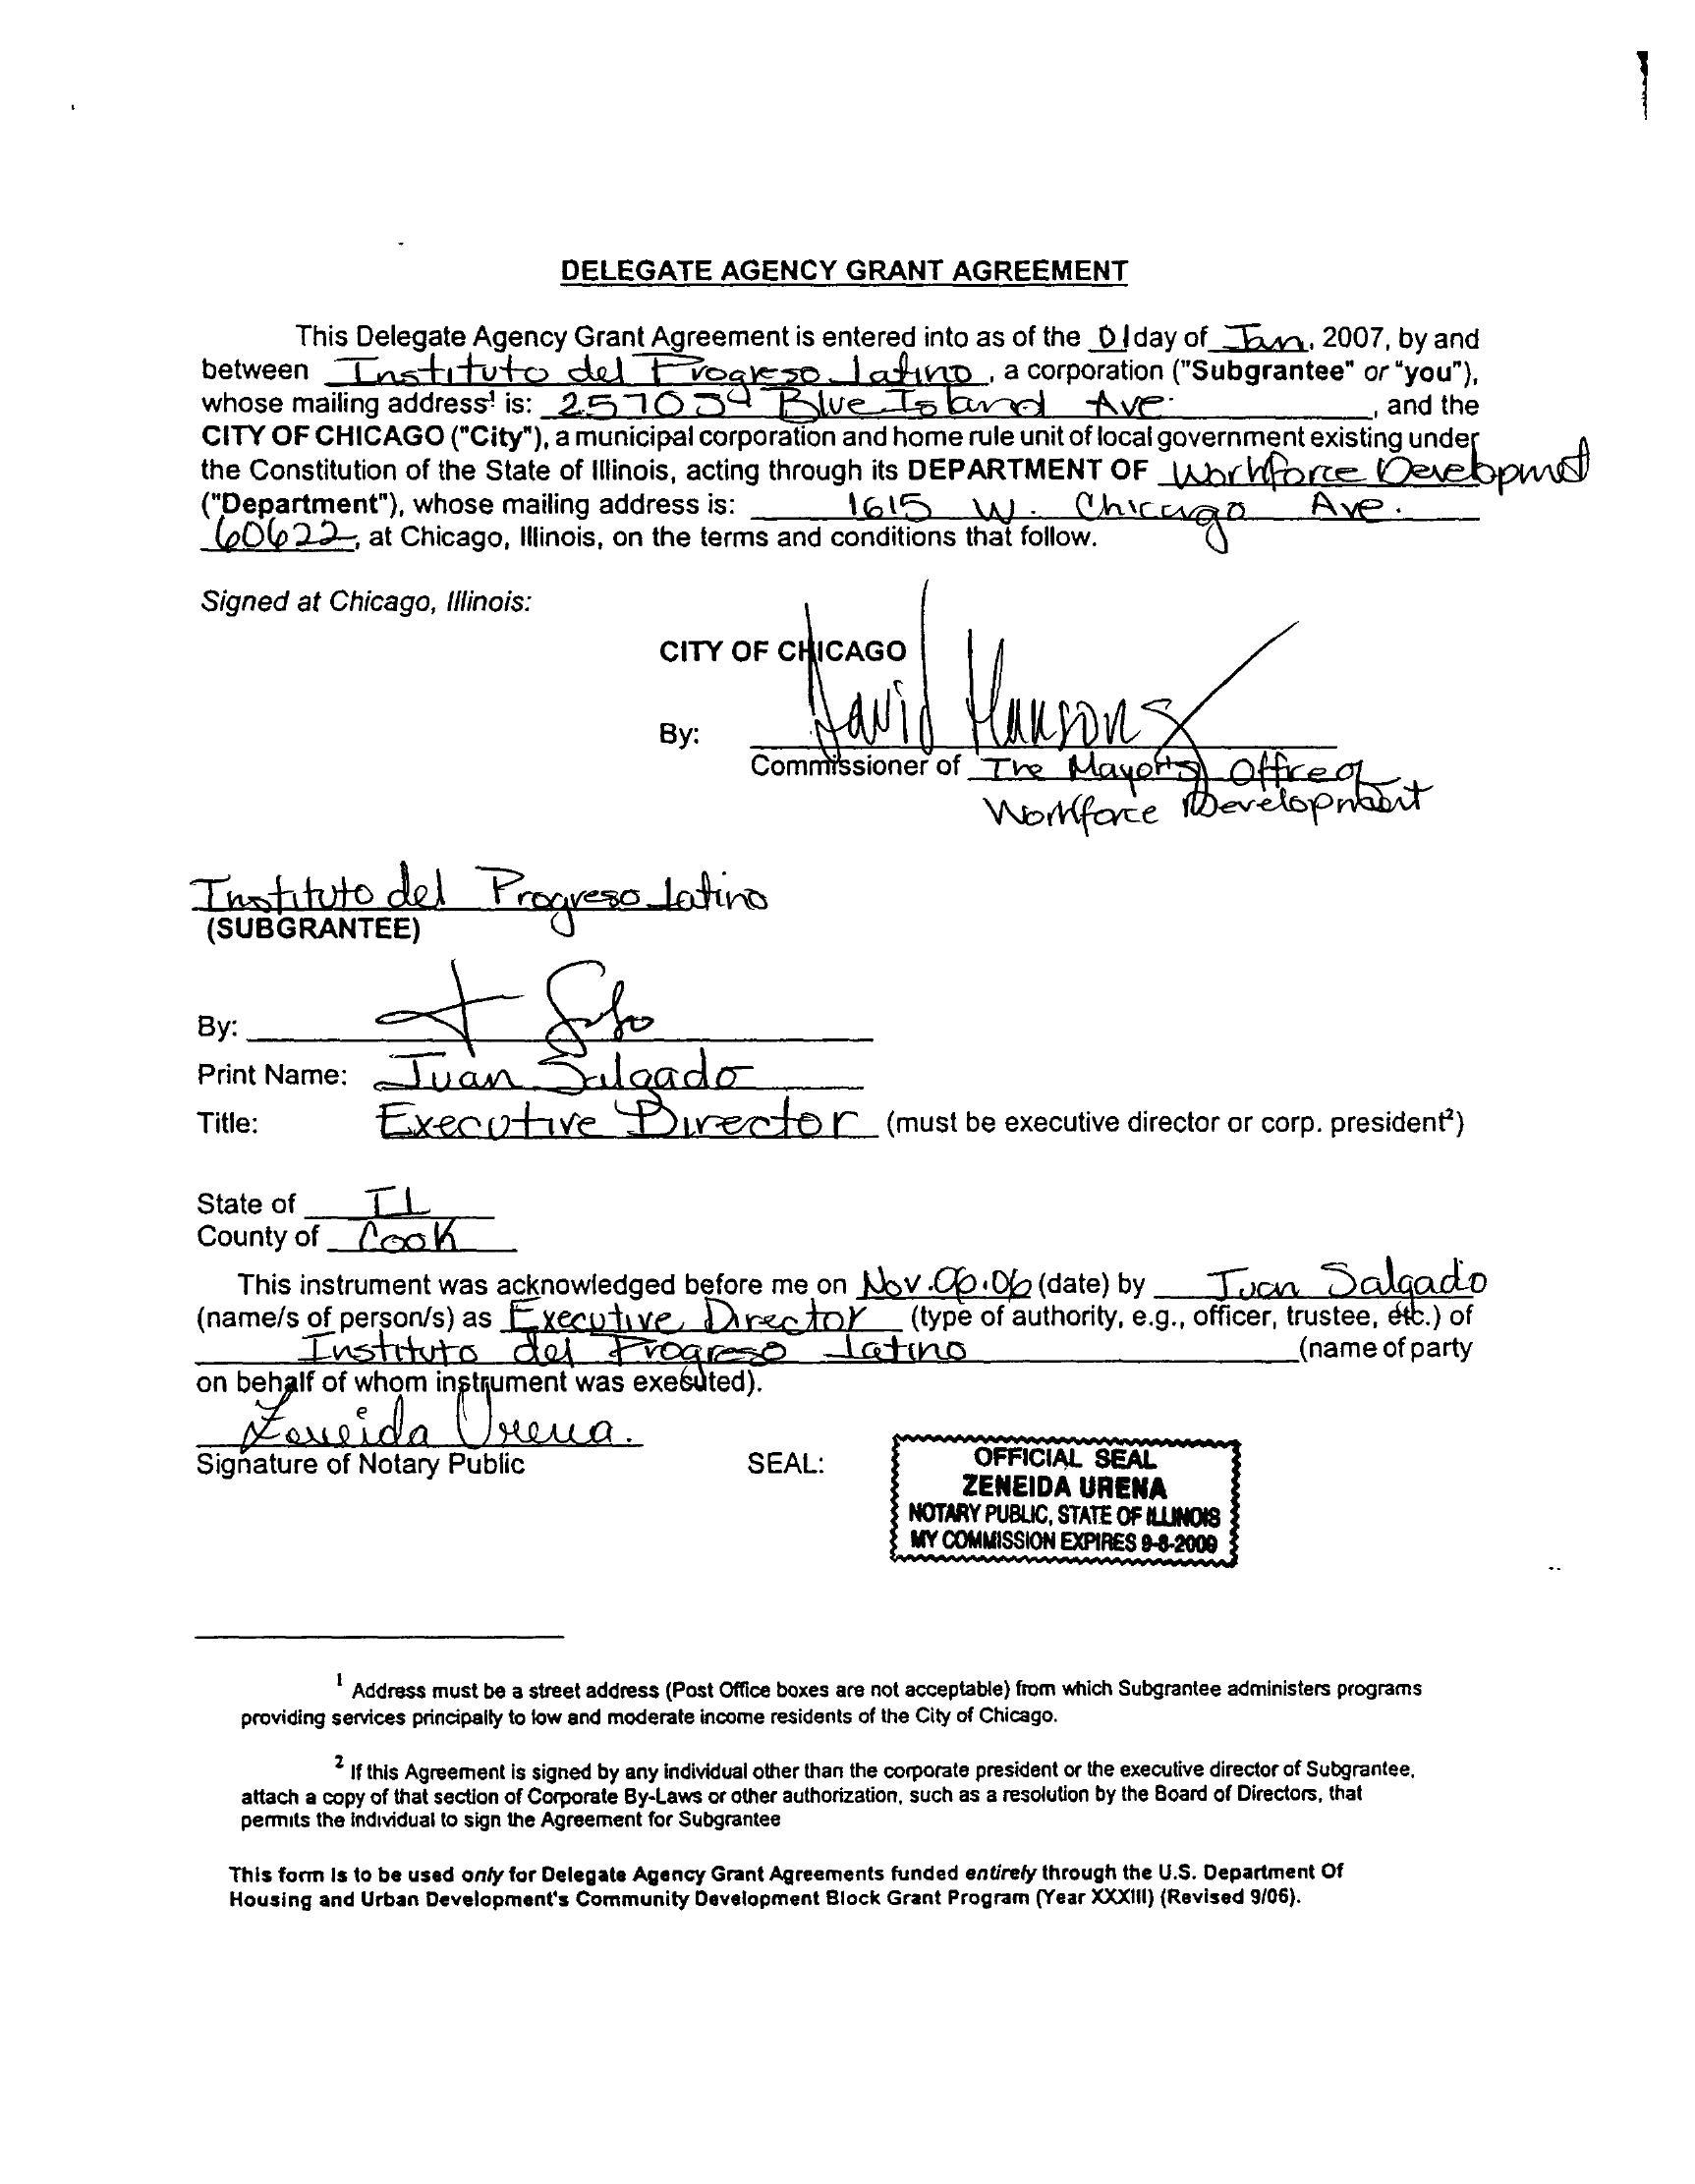 DELEGATE AGENCY GRANT AGREEMENT
This Delegate Agency Grant Agreement is entered into as of the 01 day of Jan, 2007, by and
between Instituto del Progreso Latino, a corporation ("Subgrantee" or "you"),
whose mailing address¹ is: 2570 Blue Island Ave. , and the
CITY OF CHICAGO ("City"), a municipal corporation and home rule unit of local government existing under
the Constitution of the State of Illinois, acting through its DEPARTMENT OF Workforce Developmet
("Department"), whose mailing address is: 1615 W. Chicago Ave.
60622, at Chicago, Illinois, on the terms and conditions that follow.
Signed at Chicago, Illinois:
CITY OF CHICAGO
By: David Hanson
Commissioner of The Mayor's Office of
Workforce Development
Instituto del Progreso Latino
(SUBGRANTEE)
By:
Print Name: Juan Salgado
Title: Executive Director (must be executive director or corp. president²)
State of IL
County of Cook
This instrument was acknowledged before me on Nov.06.06 (date) by Juan Salgado
(name/s of person/s) as Executive Director (type of authority, e.g., officer, trustee, etc.) of
Instituto del Progreso Latino (name of party
on behalf of whom instrument was executed).
Zeneida Urena.
Signature of Notary Public SEAL:
OFFICIAL SEAL
ZENEIDA URENA
NOTARY PUBLIC, STATE OF ILLINOIS
MY COMMISSION EXPIRES 9-8-2009
¹ Address must be a street address (Post Office boxes are not acceptable) from which Subgrantee administers programs
providing services principally to low and moderate income residents of the City of Chicago.
² If this Agreement is signed by any individual other than the corporate president or the executive director of Subgrantee,
attach a copy of that section of Corporate By-Laws or other authorization, such as a resolution by the Board of Directors, that
permits the individual to sign the Agreement for Subgrantee
This form Is to be used only for Delegate Agency Grant Agreements funded entirely through the U.S. Department Of
Housing and Urban Development's Community Development Block Grant Program (Year XXXIII) (Revised 9/06).